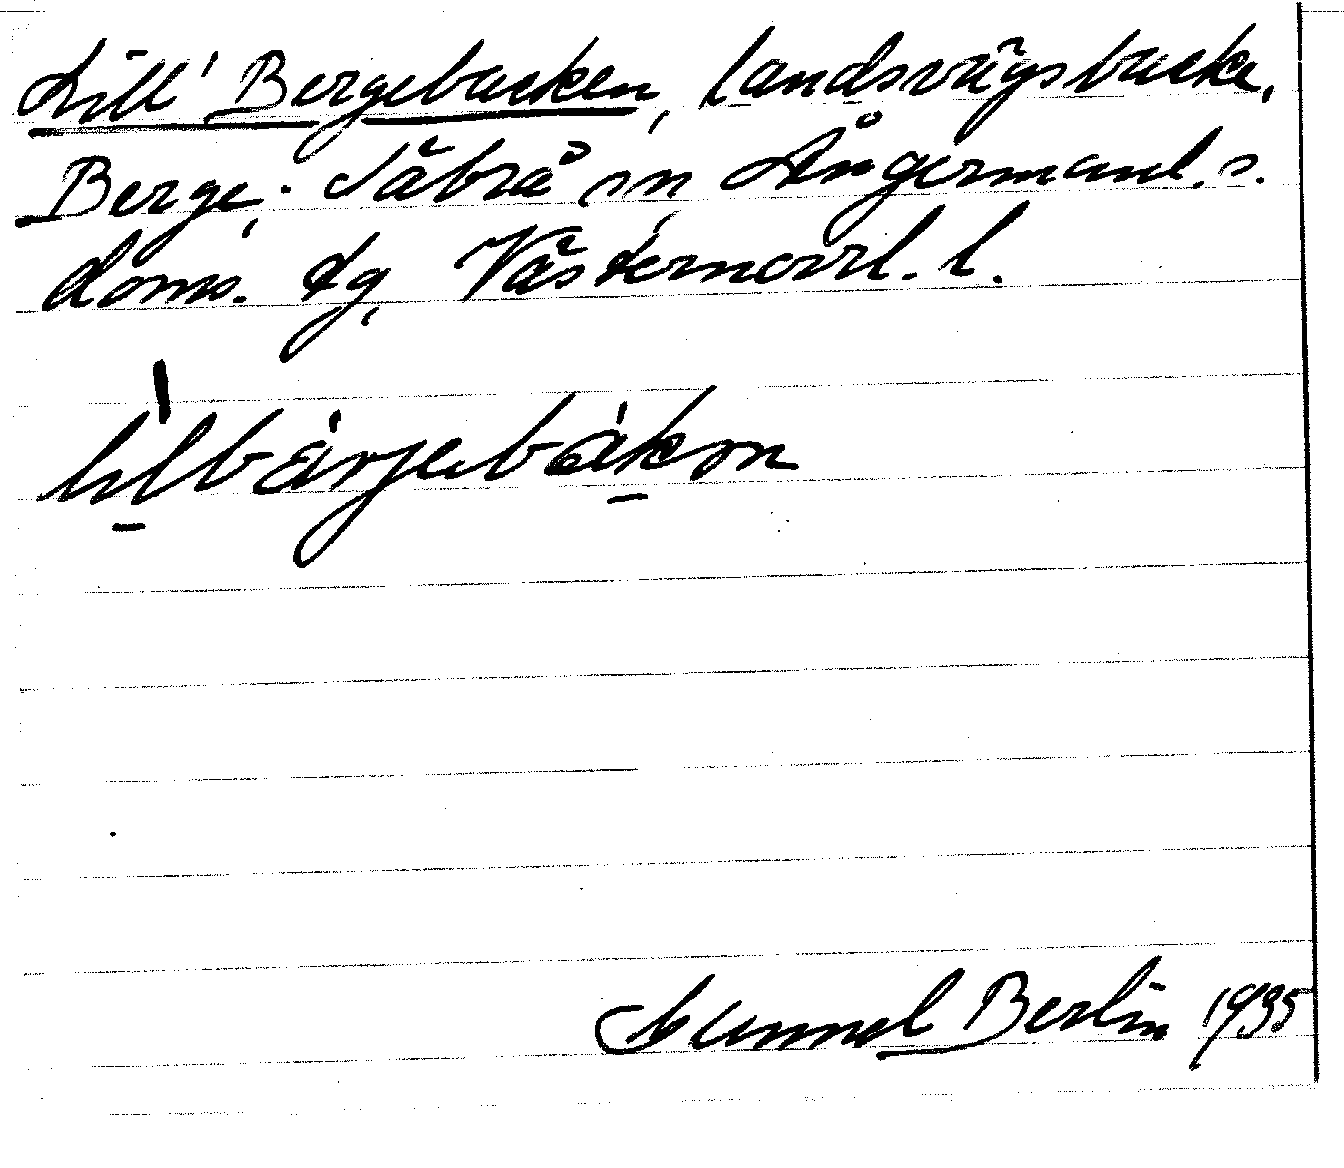 Lill' Bergebacken, landsvägsbacke,
Berge, Säbrå sn Ångermanl. s.
doms. tg, Västernorrl. l.
lilbärjebakən
Gunnel Berlin 1935